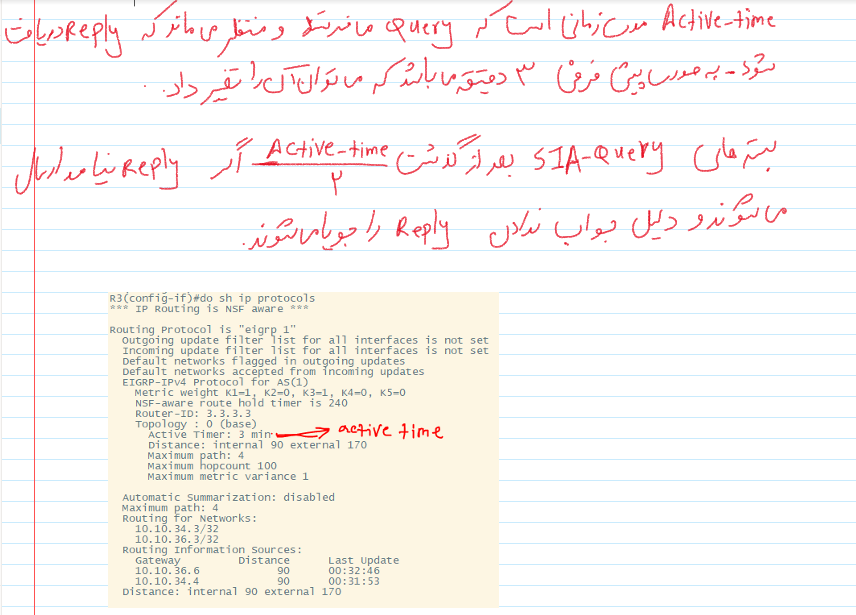 Active-time مدت زمانی است که Query میفرستد و منتظر می ماند که Reply دریافت
شود - به صورت پیش فرض ۳ دقیقه می باشد که می توان آن را تغییر داد.
بسته های SIA-Query بعد از گذشت Active-time / ۲ اگر Reply نیامد ارسال
می شوند و دلیل جواب ندادن Reply را جویا می شوند.
R3(config-if)#do sh ip protocols
*** IP Routing is NSF aware ***
Routing Protocol is "eigrp 1"
Outgoing update filter list for all interfaces is not set
Incoming update filter list for all interfaces is not set
Default networks flagged in outgoing updates
Default networks accepted from incoming updates
EIGRP-IPv4 Protocol for AS(1)
Metric weight K1=1, K2=0, K3=1, K4=0, K5=0
NSF-aware route hold timer is 240
Router-ID: 3.3.3.3
Topology : 0 (base)
Active Timer: 3 min → active time
Distance: internal 90 external 170
Maximum path: 4
Maximum hopcount 100
Maximum metric variance 1
Automatic Summarization: disabled
Maximum path: 4
Routing for Networks:
10.10.34.3/32
10.10.36.3/32
Routing Information Sources:
Gateway Distance Last Update
10.10.36.6 90 00:32:46
10.10.34.4 90 00:31:53
Distance: internal 90 external 170